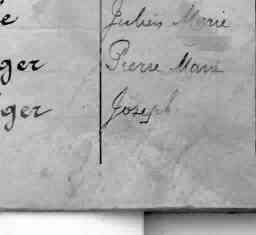 e Julien Marie
ger Pierre Marie
ger Joseph